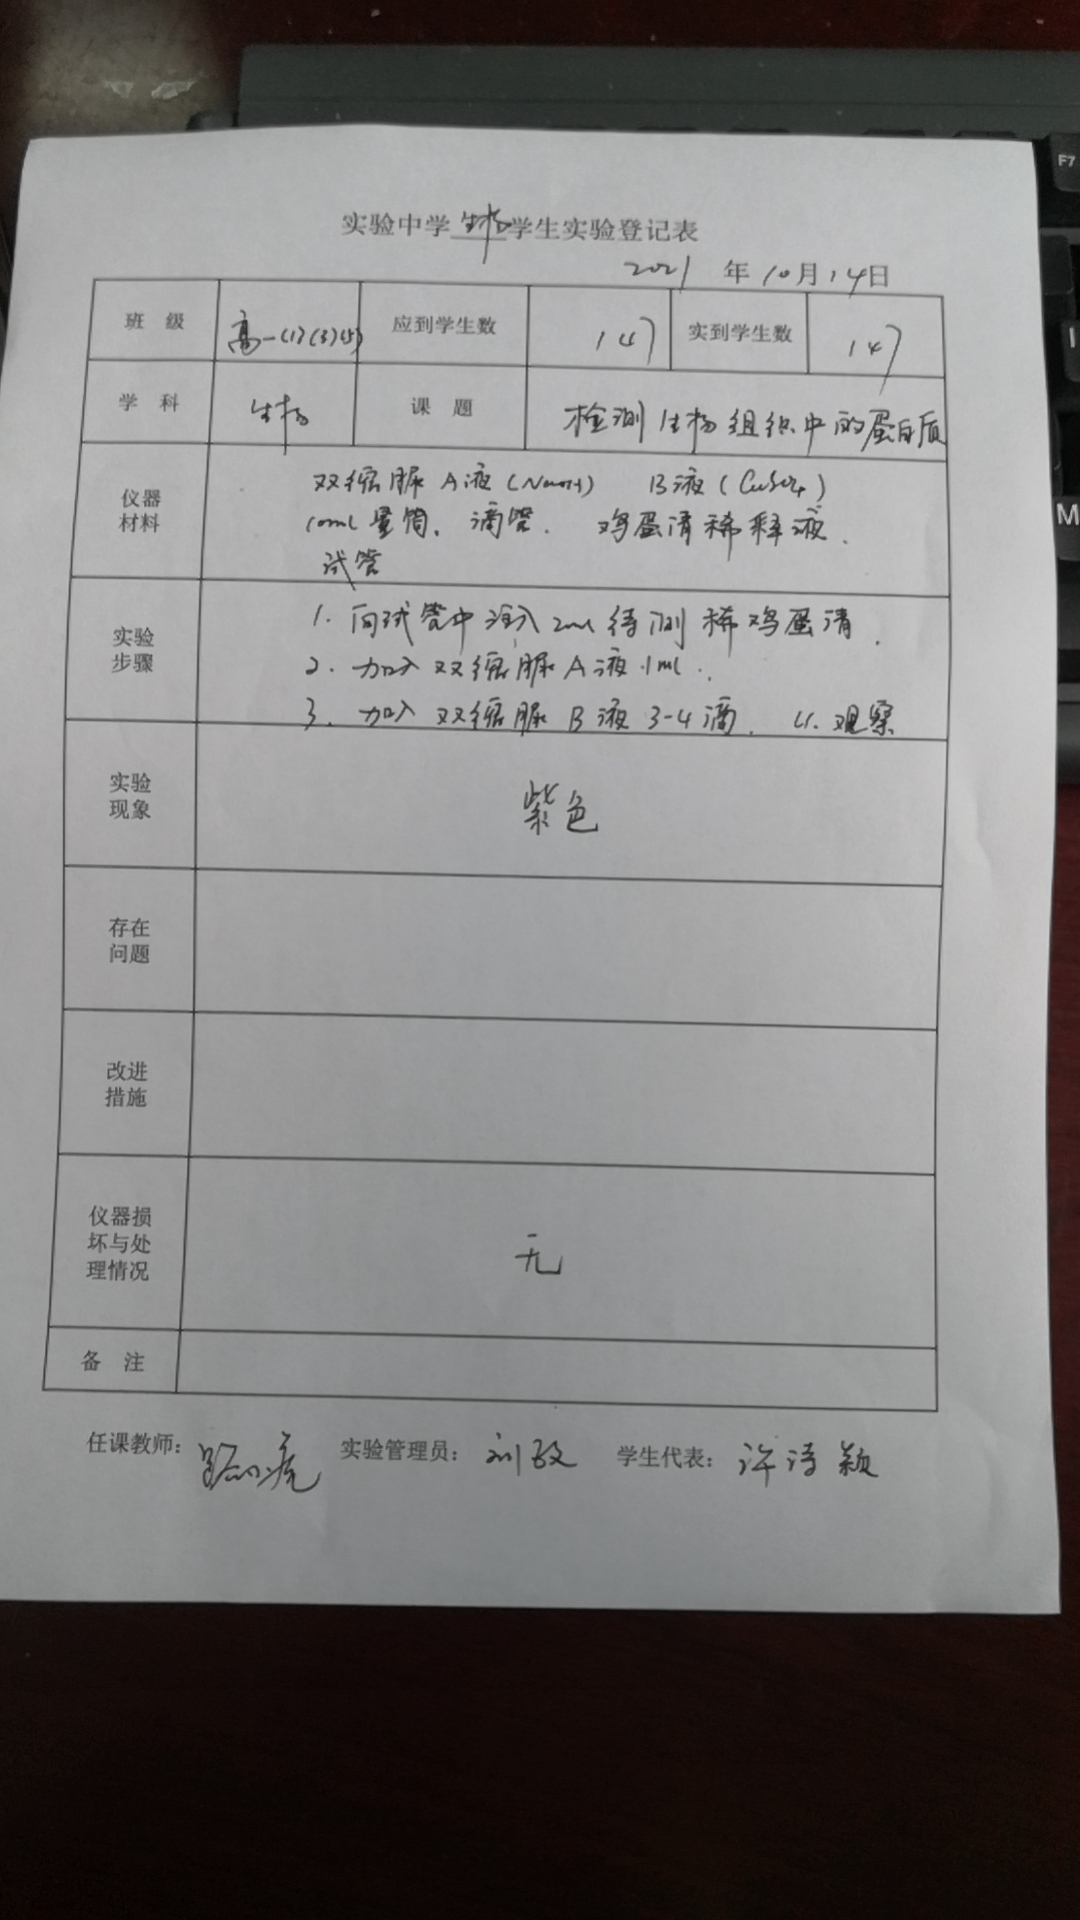 实验中学生物学生实验登记表
2021年10月14日
班 级 高一(1)(3)(5) 应到学生数 147 实到学生数 147
学 科 生物 课 题 检测生物组织中的蛋白质
仪器材料
双缩脲A液(NaOH) B液(CuSO4)
10ml量筒、滴管. 鸡蛋清稀释液.
试管
实验步骤
1. 向试管中注入2ml待测稀鸡蛋清.
2. 加入双缩脲A液1ml.
3. 加入双缩脲B液3-4滴. 4. 观察
实验现象
紫色
存在问题
改进措施
仪器损坏与处理情况
无
备 注
任课教师: 实验管理员: 刘政 学生代表: 许诗颖
F7
M